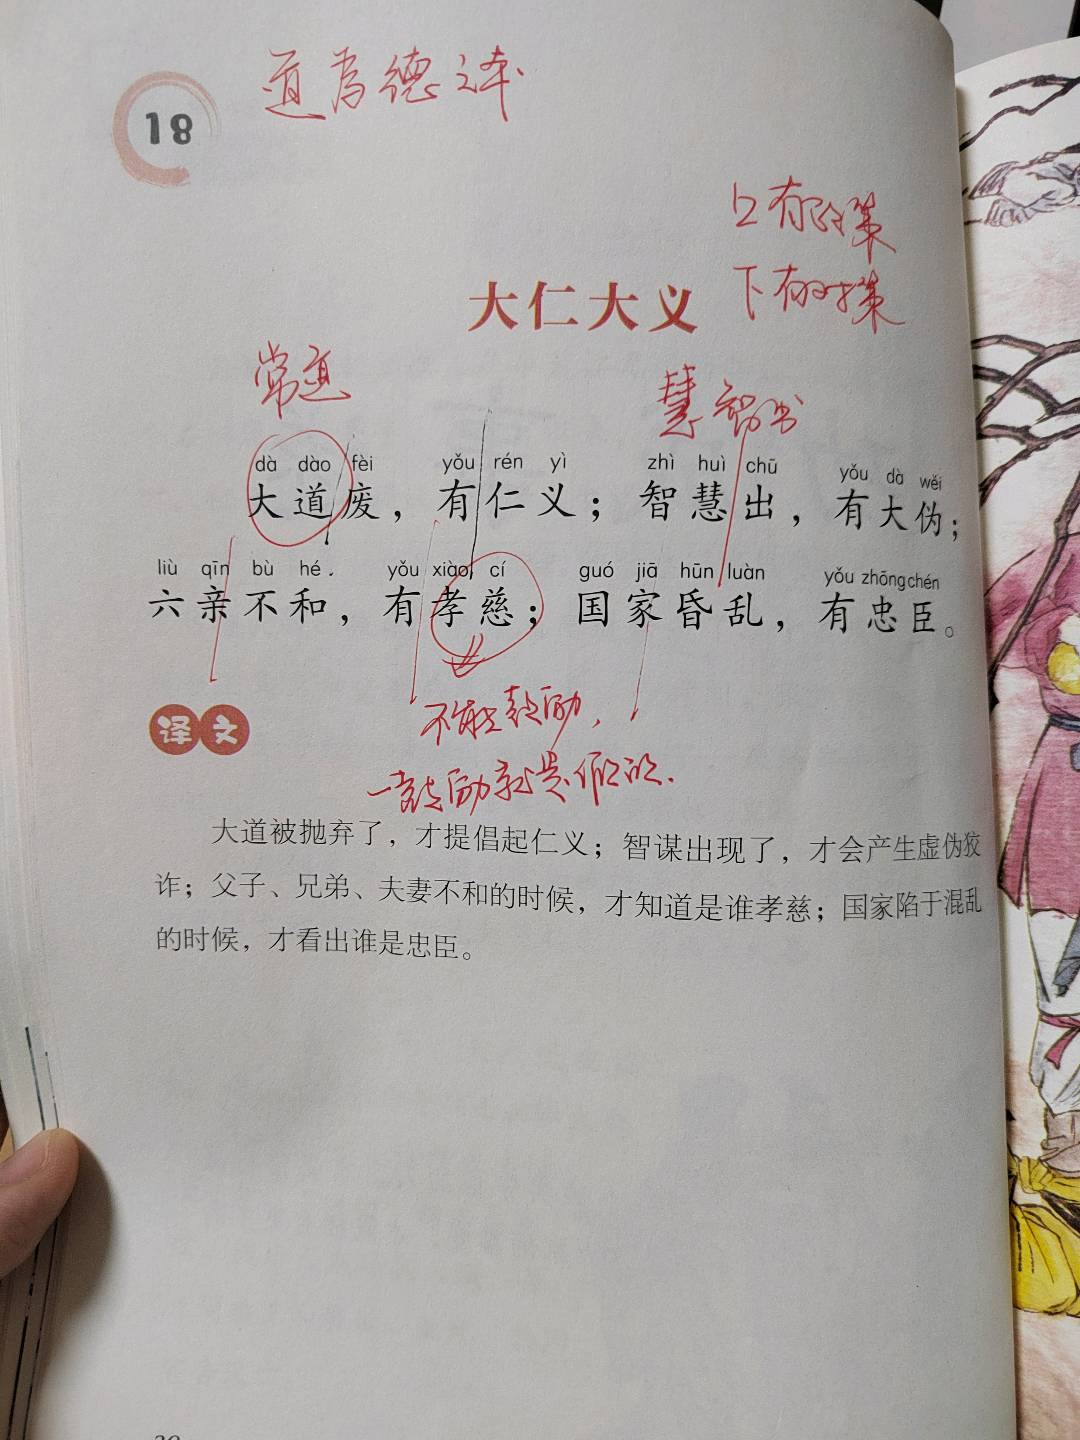 18
道为德之本
上有政策
下有对策
大仁大义
常道
慧智出
dà dào fèi yǒu rén yì zhì huì chū yǒu dà wěi
大道废，有仁义；智慧出，有大伪；
liù qīn bù hé yǒu xiào cí guó jiā hūn luàn yǒu zhōng chén
六亲不和，有孝慈；国家昏乱，有忠臣。
不能鼓励，
一鼓励就是假的.
译文
大道被抛弃了，才提倡起仁义；智谋出现了，才会产生虚伪狡
诈；父子、兄弟、夫妻不和的时候，才知道是谁孝慈；国家陷于混乱
的时候，才看出谁是忠臣。